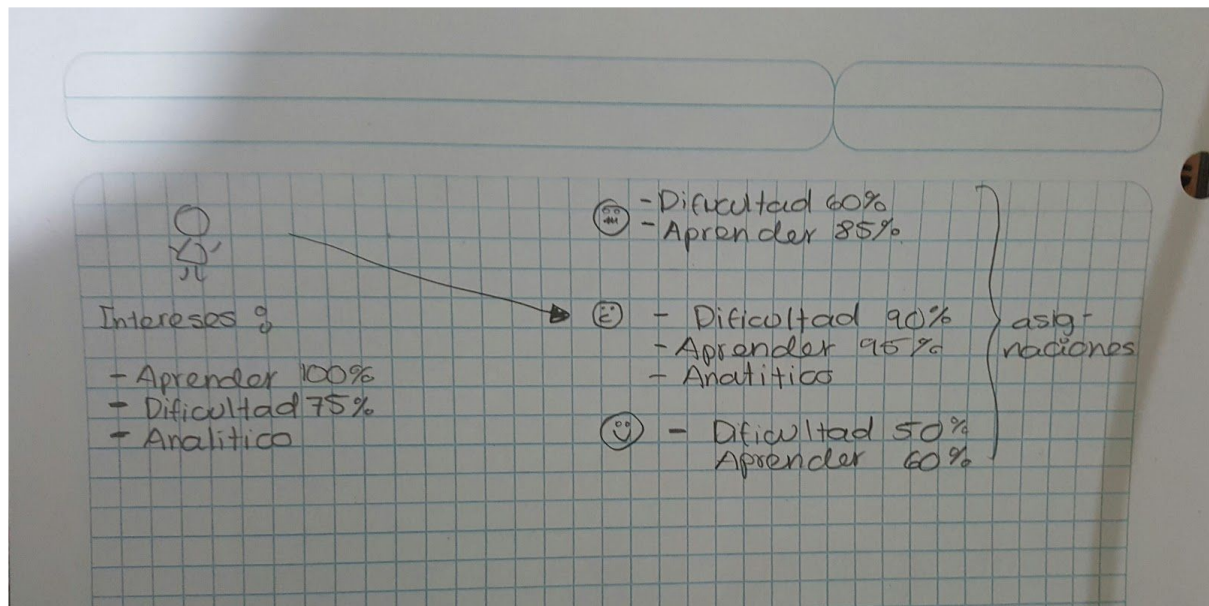 Intereses :
- Aprender 100%
- Dificultad 75%
- Analitico
- Dificultad 60%
- Aprender 85%
- Dificultad 90%
- Aprender 95%
- Analitico
- Dificultad 50%
Aprender 60%
asig-
naciones